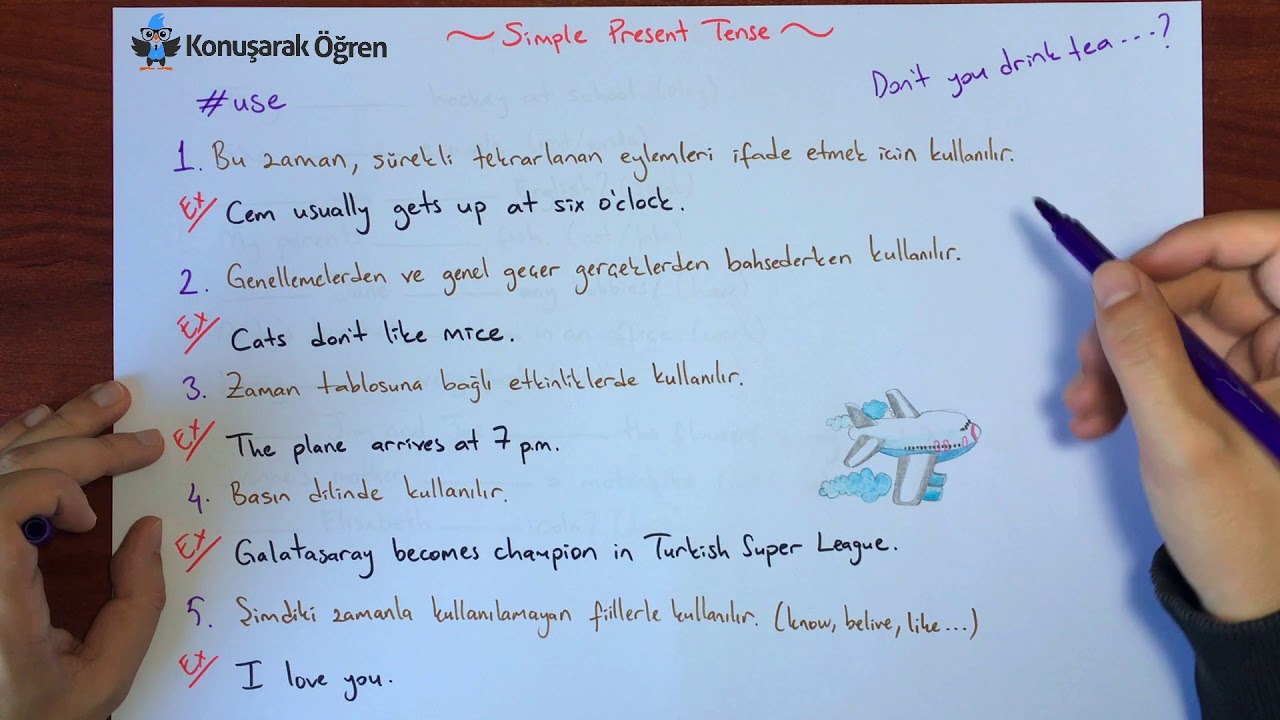 Konuşarak Öğren
~ Simple Present Tense ~
Don't you drink tea ...?
#use
1. Bu zaman, sürekli tekrarlanan eylemleri ifade etmek için kullanılır.
Ex Cem usually gets up at six o'clock.
2. Genellemelerden ve genel geçer gerçeklerden bahsederken kullanılır.
Ex Cats don't like mice.
3. Zaman tablosuna bağlı etkinliklerde kullanılır.
Ex The plane arrives at 7 p.m.
4. Basın dilinde kullanılır.
Ex Galatasaray becomes champion in Turkish Super League.
5. Şimdiki zamanla kullanılamayan fiillerle kullanılır. (know, belive, like...)
Ex I love you.